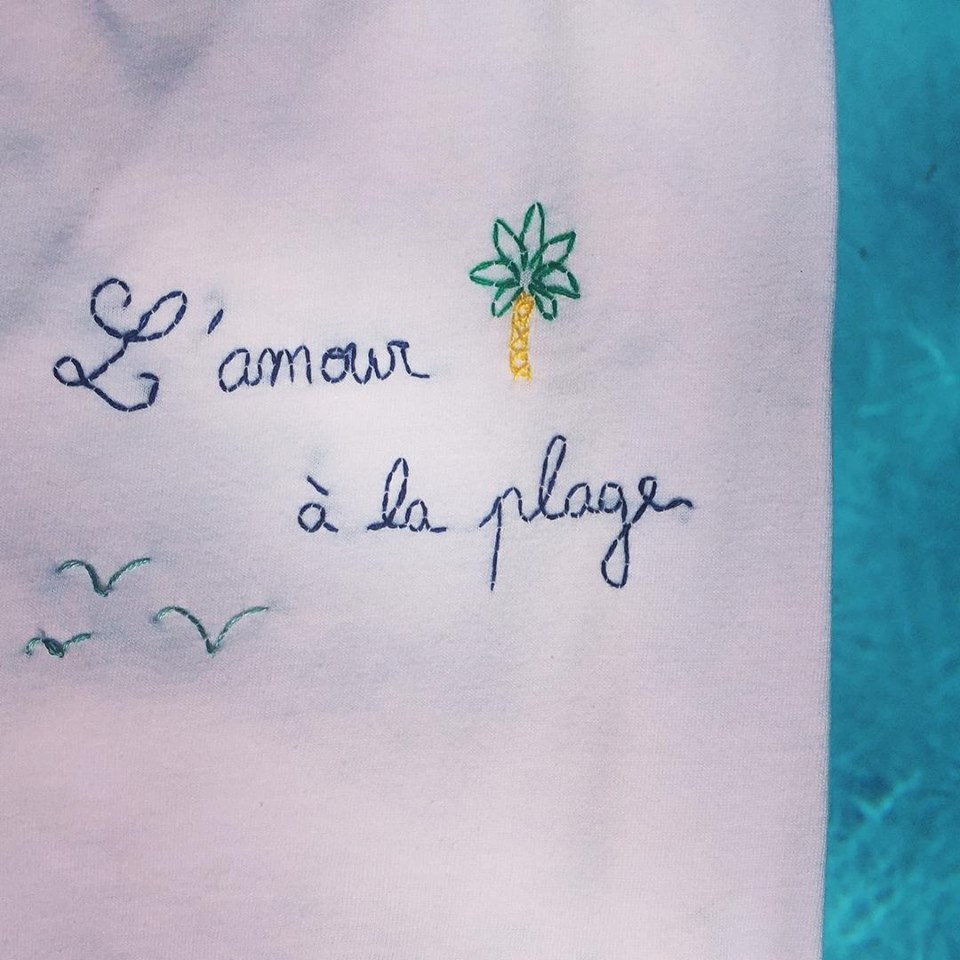 L'amour
à la plage